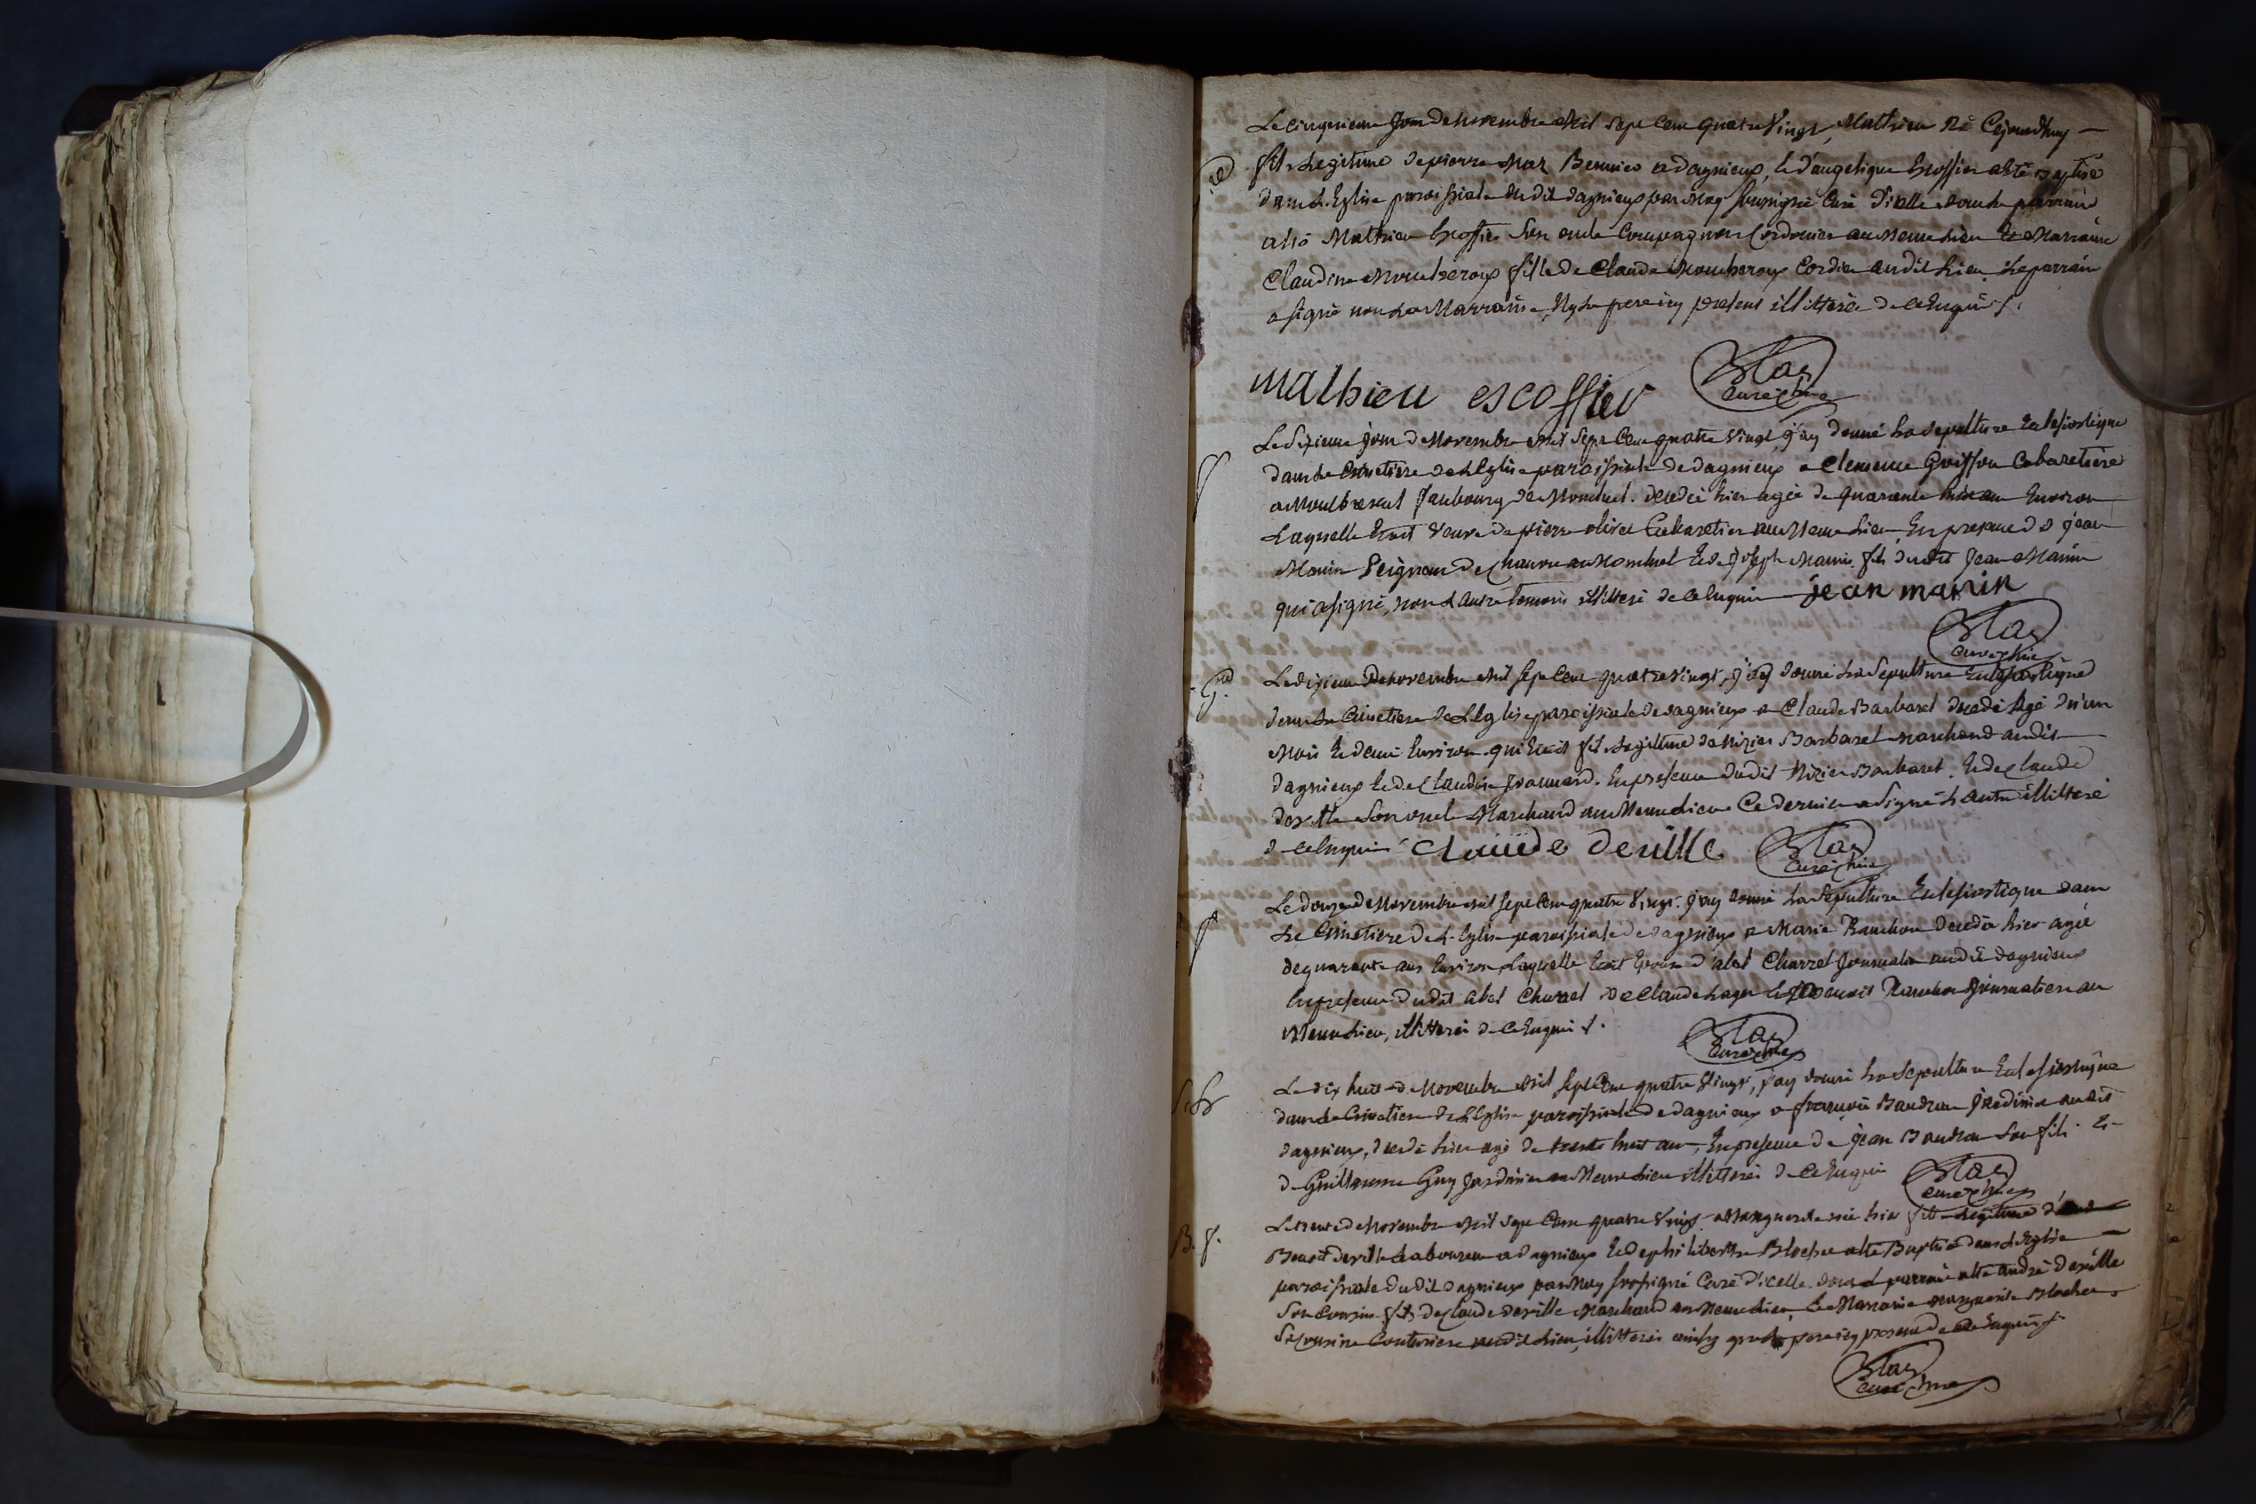 Le cinquieme Jour de Novembre Mil Sept Cent quatre Vingt, Mathieu né Cejourdhuy
fils Legitime de pierre a dagnieux, & d'angelique Escoffier a Eté Baptisé
dans L'Eglise paroissiale du dit dagnieux par Moy soussigné Curé d'icelle dont le parrain
a Eté Mathieu Escoffier Son oncle Compagnon Cordonier au Meme Lieu & Marraine
Claudine fille de Claude Cordier audit Lieu Le parrain
a signé non La Marraine, Ny Le pere icy present illitteré de ce Enquis
mathieu escoffier
Curé
Le Sixieme jour de Novembre Mil Sept Cent quatre Vingt, j'ay donné La Sepulture Eclesiastique
dans Le Cimetiere de L'Eglise paroissiale de dagnieux a Clemence Goiffon Cabaretiere
a faubourg de Montluel. decedée hier agée de quarante huit ans Environ
Laquelle Etoit Veuve de pierre olivet Cabaretier au Meme Lieu, En presence de jean
Manin Peigneur de Chanvre au Montluel & de Joseph Manin fils dudit Jean Manin
qui a signé, non L'autre temoin illitteré de ce Enquis jean manin
Curé
Le dixieme de Novembre Mil Sept Cent quatre Vingt, j'ay donné La Sepulture Eclesiastique
dans Le Cimetiere de L'Eglise paroissiale de dagnieux a Claude Barbaret decedé Agé d'un
Mois & demi Environ qui Etoit fils Legitime de Nizier Barbaret Marchand audit
dagnieux & de Claudine En presence dudit Nizier Barbaret. & de Claude
deville Son oncle Marchand au Meme Lieu Ce dernier a Signé L'autre illitteré
de ce Enquis Clauide deville
Curé
Le douze de Novembre Mil Sept Cent quatre Vingt. j'ay donné La Sepulture Eclesiastique dans
Le Cimetiere de L'Eglise paroissiale de dagnieux a Marie decedée hier agée
de quarante ans Environ, Laquelle Etoit Epouse d'abel Charvet Journalier audit dagnieux
En presence dudit abel Charvet de Claude & Benoit Journalier au
Meme Lieu, illitteré de ce Enquis
Curé
Le dix huit de Novembre Mil Sept Cent quatre Vingt, j'ay donné La Sepulture Eclesiastique
dans Le Cimetiere de L'Eglise paroissiale de dagnieux a françois Baudran Jardinier audit
dagnieux, decedé hier agé de trente huit ans, En presence de jean Baudran Son fils &
de Guillaume Guy Jardinier au Meme Lieu illitteré de ce Enquis
Curé
Le trente de Novembre Mil Sept Cent quatre Vingt Marguerite née hier fille Legitime
Benoit deville Laboureur a dagnieux & de philiberte Blocher a Eté Baptisée dans L'Eglise
paroissiale dudit dagnieux par Moy soussigné Curé d'icelle dont Le parrain a Eté andré deville
Son Cousin fils de Claude deville Marchand au Meme Lieu & La Marraine Marguerite Blocher
Sa Cousine Couturiere audit Lieu, illitterés ainsy que Le pere icy present de ce Enquis
Curé